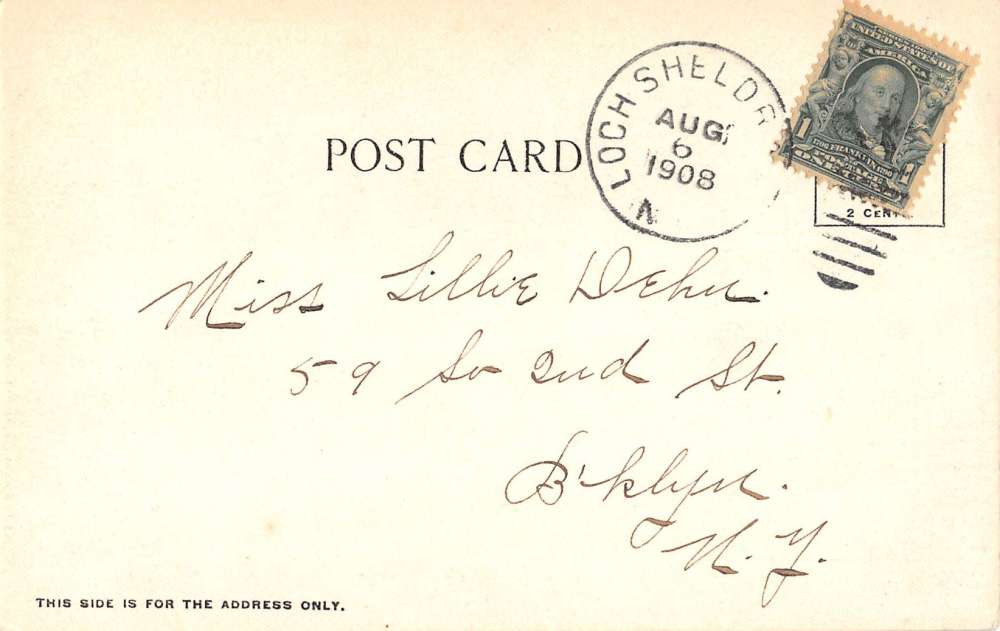 POST CARD
LOCH SHELDR
AUG
6
1908
N
UNITED STATES OF
AMERICA
1706 FRANKLIN 1790
1 1
POSTAGE
ONE
2 CENT
Miss Lillie Dehn.
59 So 2nd St.
B'klyn.
N. Y.
THIS SIDE IS FOR THE ADDRESS ONLY.